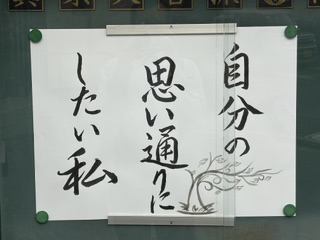 自分の
思い通りに
したい私